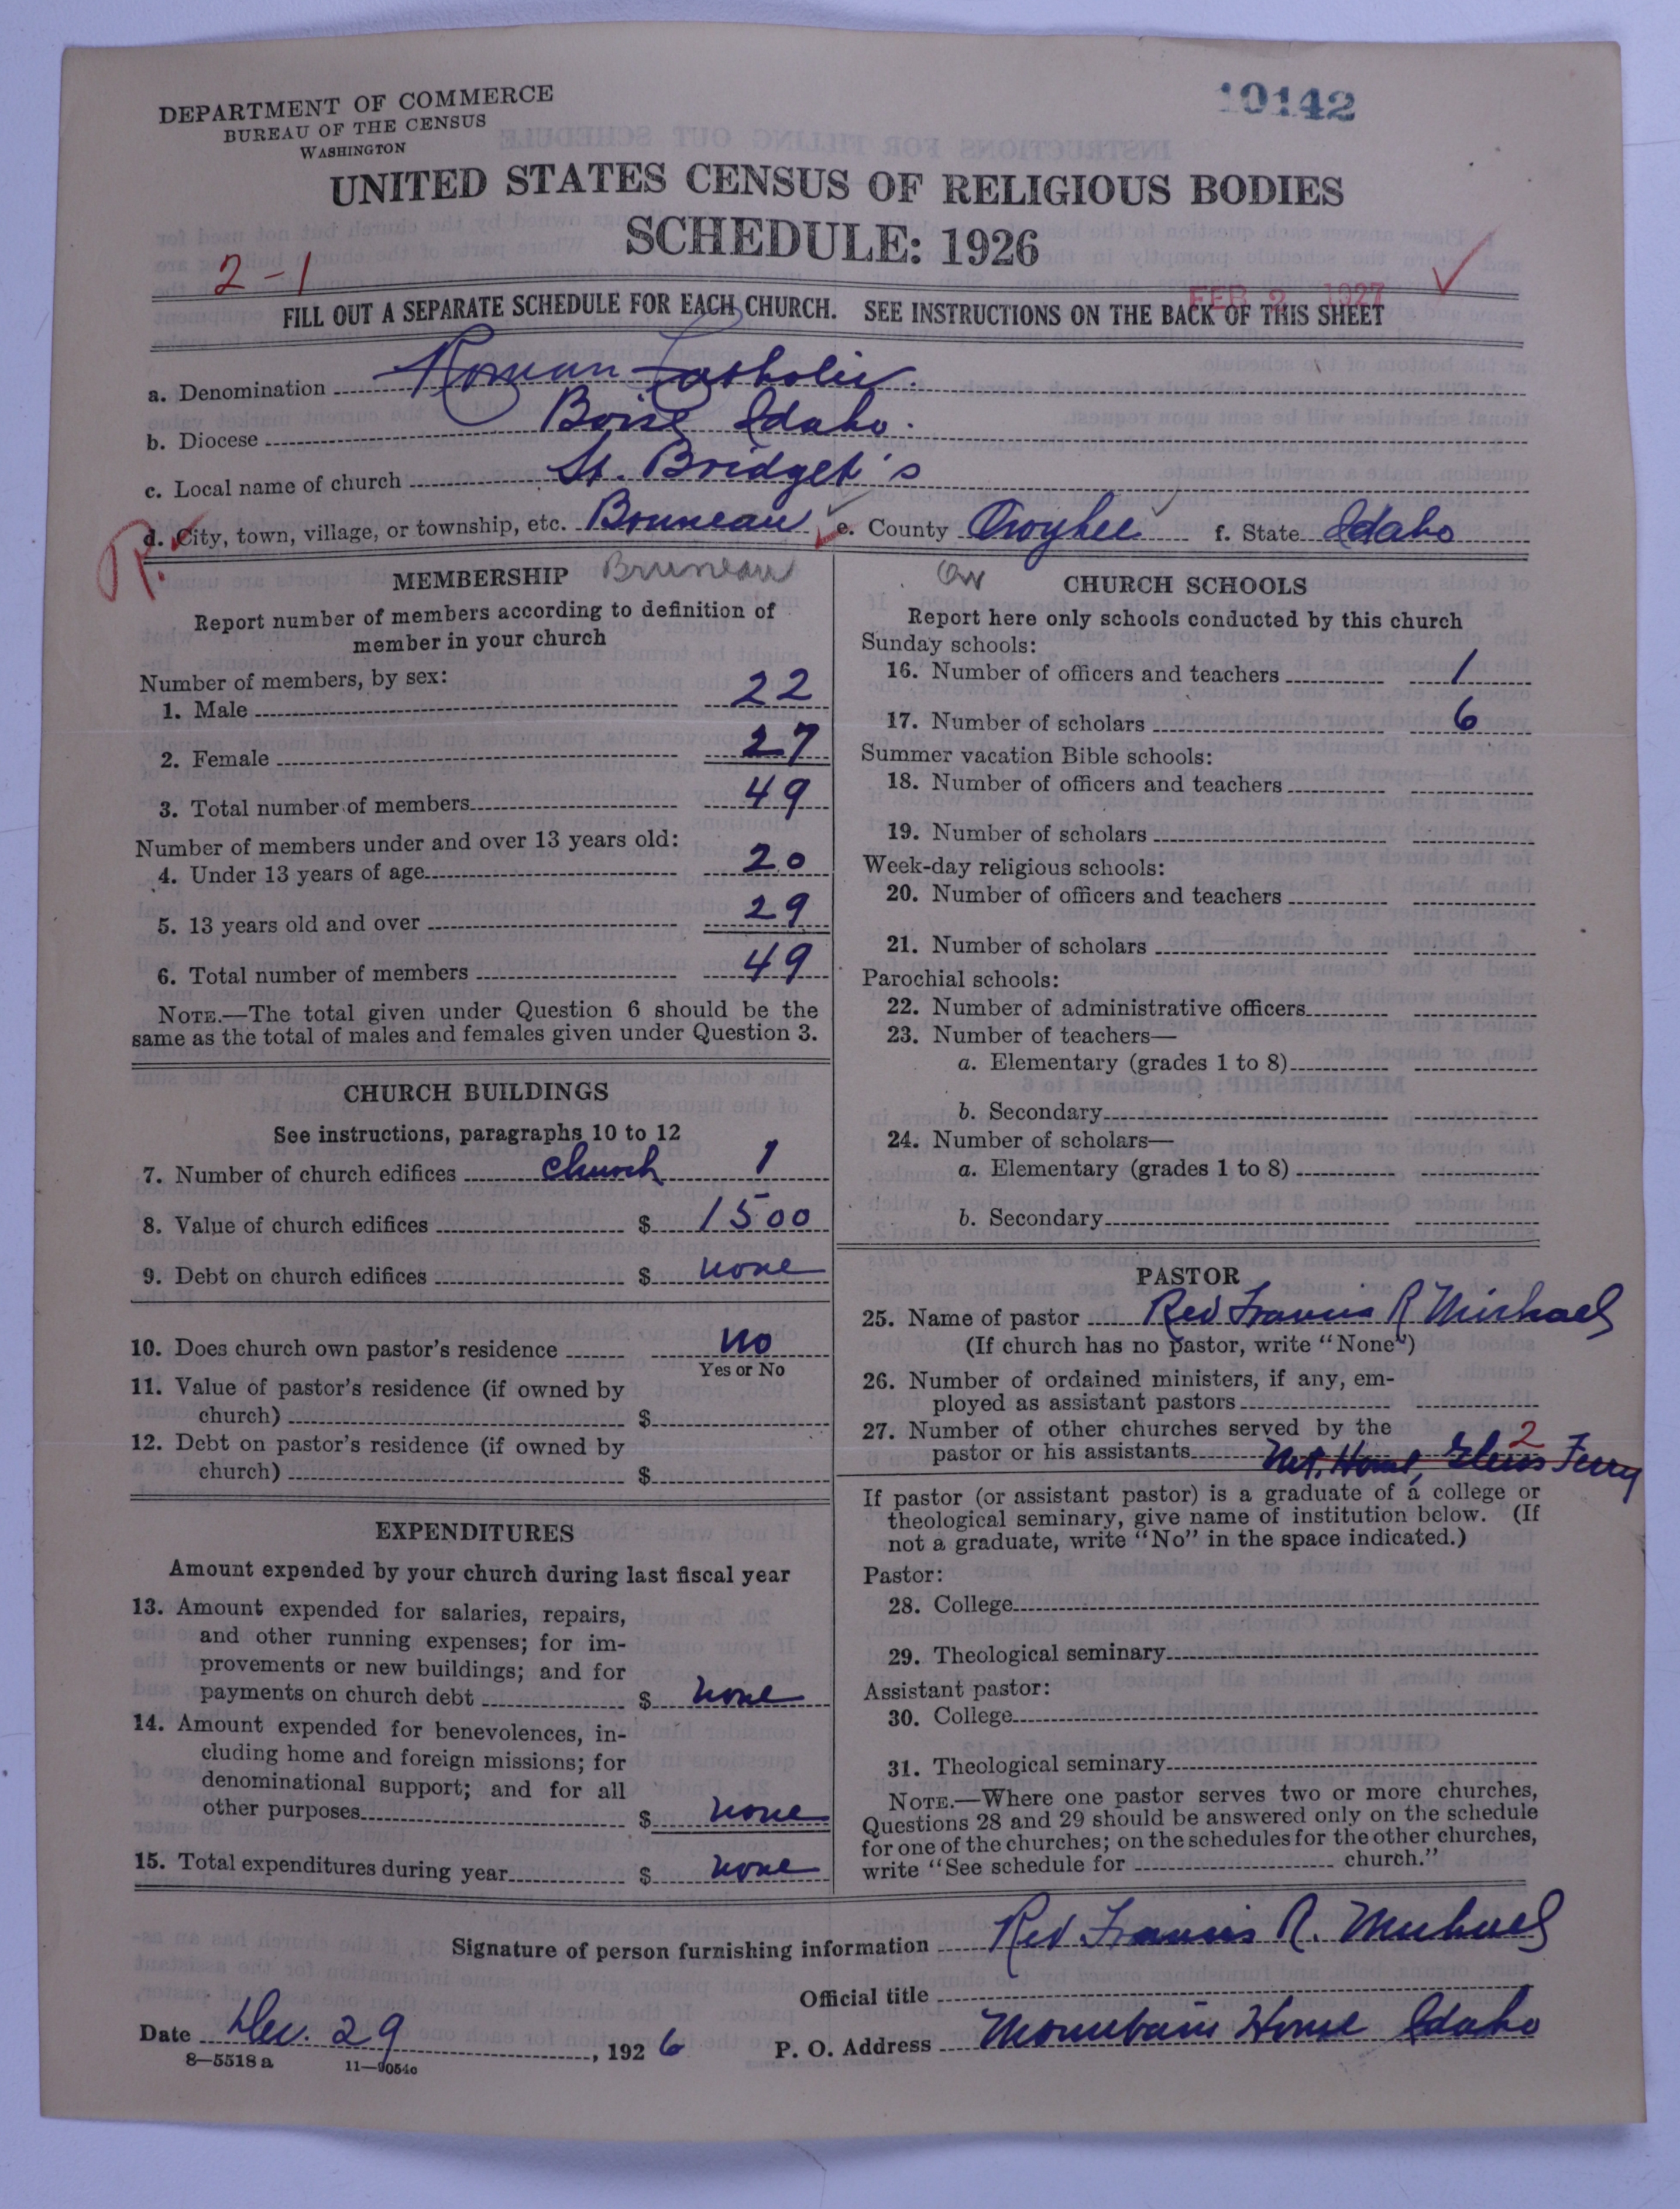 DEPARTMENT OF COMMERCE
BUREAU OF THE CENSUS
WASHINGTON
10142
UNITED STATES CENSUS OF RELIGIOUS BODIES
SCHEDULE: 1926
2-1
FEB 2 1927
FILL OUT A SEPARATE SCHEDULE FOR EACH CHURCH. SEE INSTRUCTIONS ON THE BACK OF THIS SHEET
a. Denomination Roman Catholic.
b. Diocese Boise Idaho.
c. Local name of church St. Bridget's
R. d. City, town, village, or township, etc. Bouneau e. County Owyhee f. State Idaho
Bruneau
MEMBERSHIP
Report number of members according to definition of
member in your church
Number of members, by sex:
1. Male 22
2. Female 27
3. Total number of members 49
Number of members under and over 13 years old:
4. Under 13 years of age 20
5. 13 years old and over 29
6. Total number of members 49
NOTE.—The total given under Question 6 should be the
same as the total of males and females given under Question 3.
CHURCH BUILDINGS
See instructions, paragraphs 10 to 12
7. Number of church edifices church 1
8. Value of church edifices $ 1500
9. Debt on church edifices $ none
10. Does church own pastor's residence no
Yes or No
11. Value of pastor's residence (if owned by
church) $
12. Debt on pastor's residence (if owned by
church) $
EXPENDITURES
Amount expended by your church during last fiscal year
13. Amount expended for salaries, repairs,
and other running expenses; for im-
provements or new buildings; and for
payments on church debt $ none
14. Amount expended for benevolences, in-
cluding home and foreign missions; for
denominational support; and for all
other purposes $ none
15. Total expenditures during year $ none
Ow
CHURCH SCHOOLS
Report here only schools conducted by this church
Sunday schools:
16. Number of officers and teachers 1
17. Number of scholars 6
Summer vacation Bible schools:
18. Number of officers and teachers
19. Number of scholars
Week-day religious schools:
20. Number of officers and teachers
21. Number of scholars
Parochial schools:
22. Number of administrative officers
23. Number of teachers—
a. Elementary (grades 1 to 8)
b. Secondary
24. Number of scholars—
a. Elementary (grades 1 to 8)
b. Secondary
PASTOR
25. Name of pastor Rev Francis R Michael
(If church has no pastor, write "None")
26. Number of ordained ministers, if any, em-
ployed as assistant pastors
27. Number of other churches served by the 2
pastor or his assistants Mt. Home, Glenns Ferry
If pastor (or assistant pastor) is a graduate of a college or
theological seminary, give name of institution below. (If
not a graduate, write "No" in the space indicated.)
Pastor:
28. College
29. Theological seminary
Assistant pastor:
30. College
31. Theological seminary
NOTE.—Where one pastor serves two or more churches,
Questions 28 and 29 should be answered only on the schedule
for one of the churches; on the schedules for the other churches,
write "See schedule for church."
Signature of person furnishing information Rev Francis R. Michael
Official title
Date Dec. 29, 1926 P. O. Address Mountain Home Idaho
8—5518 a 11—9054c